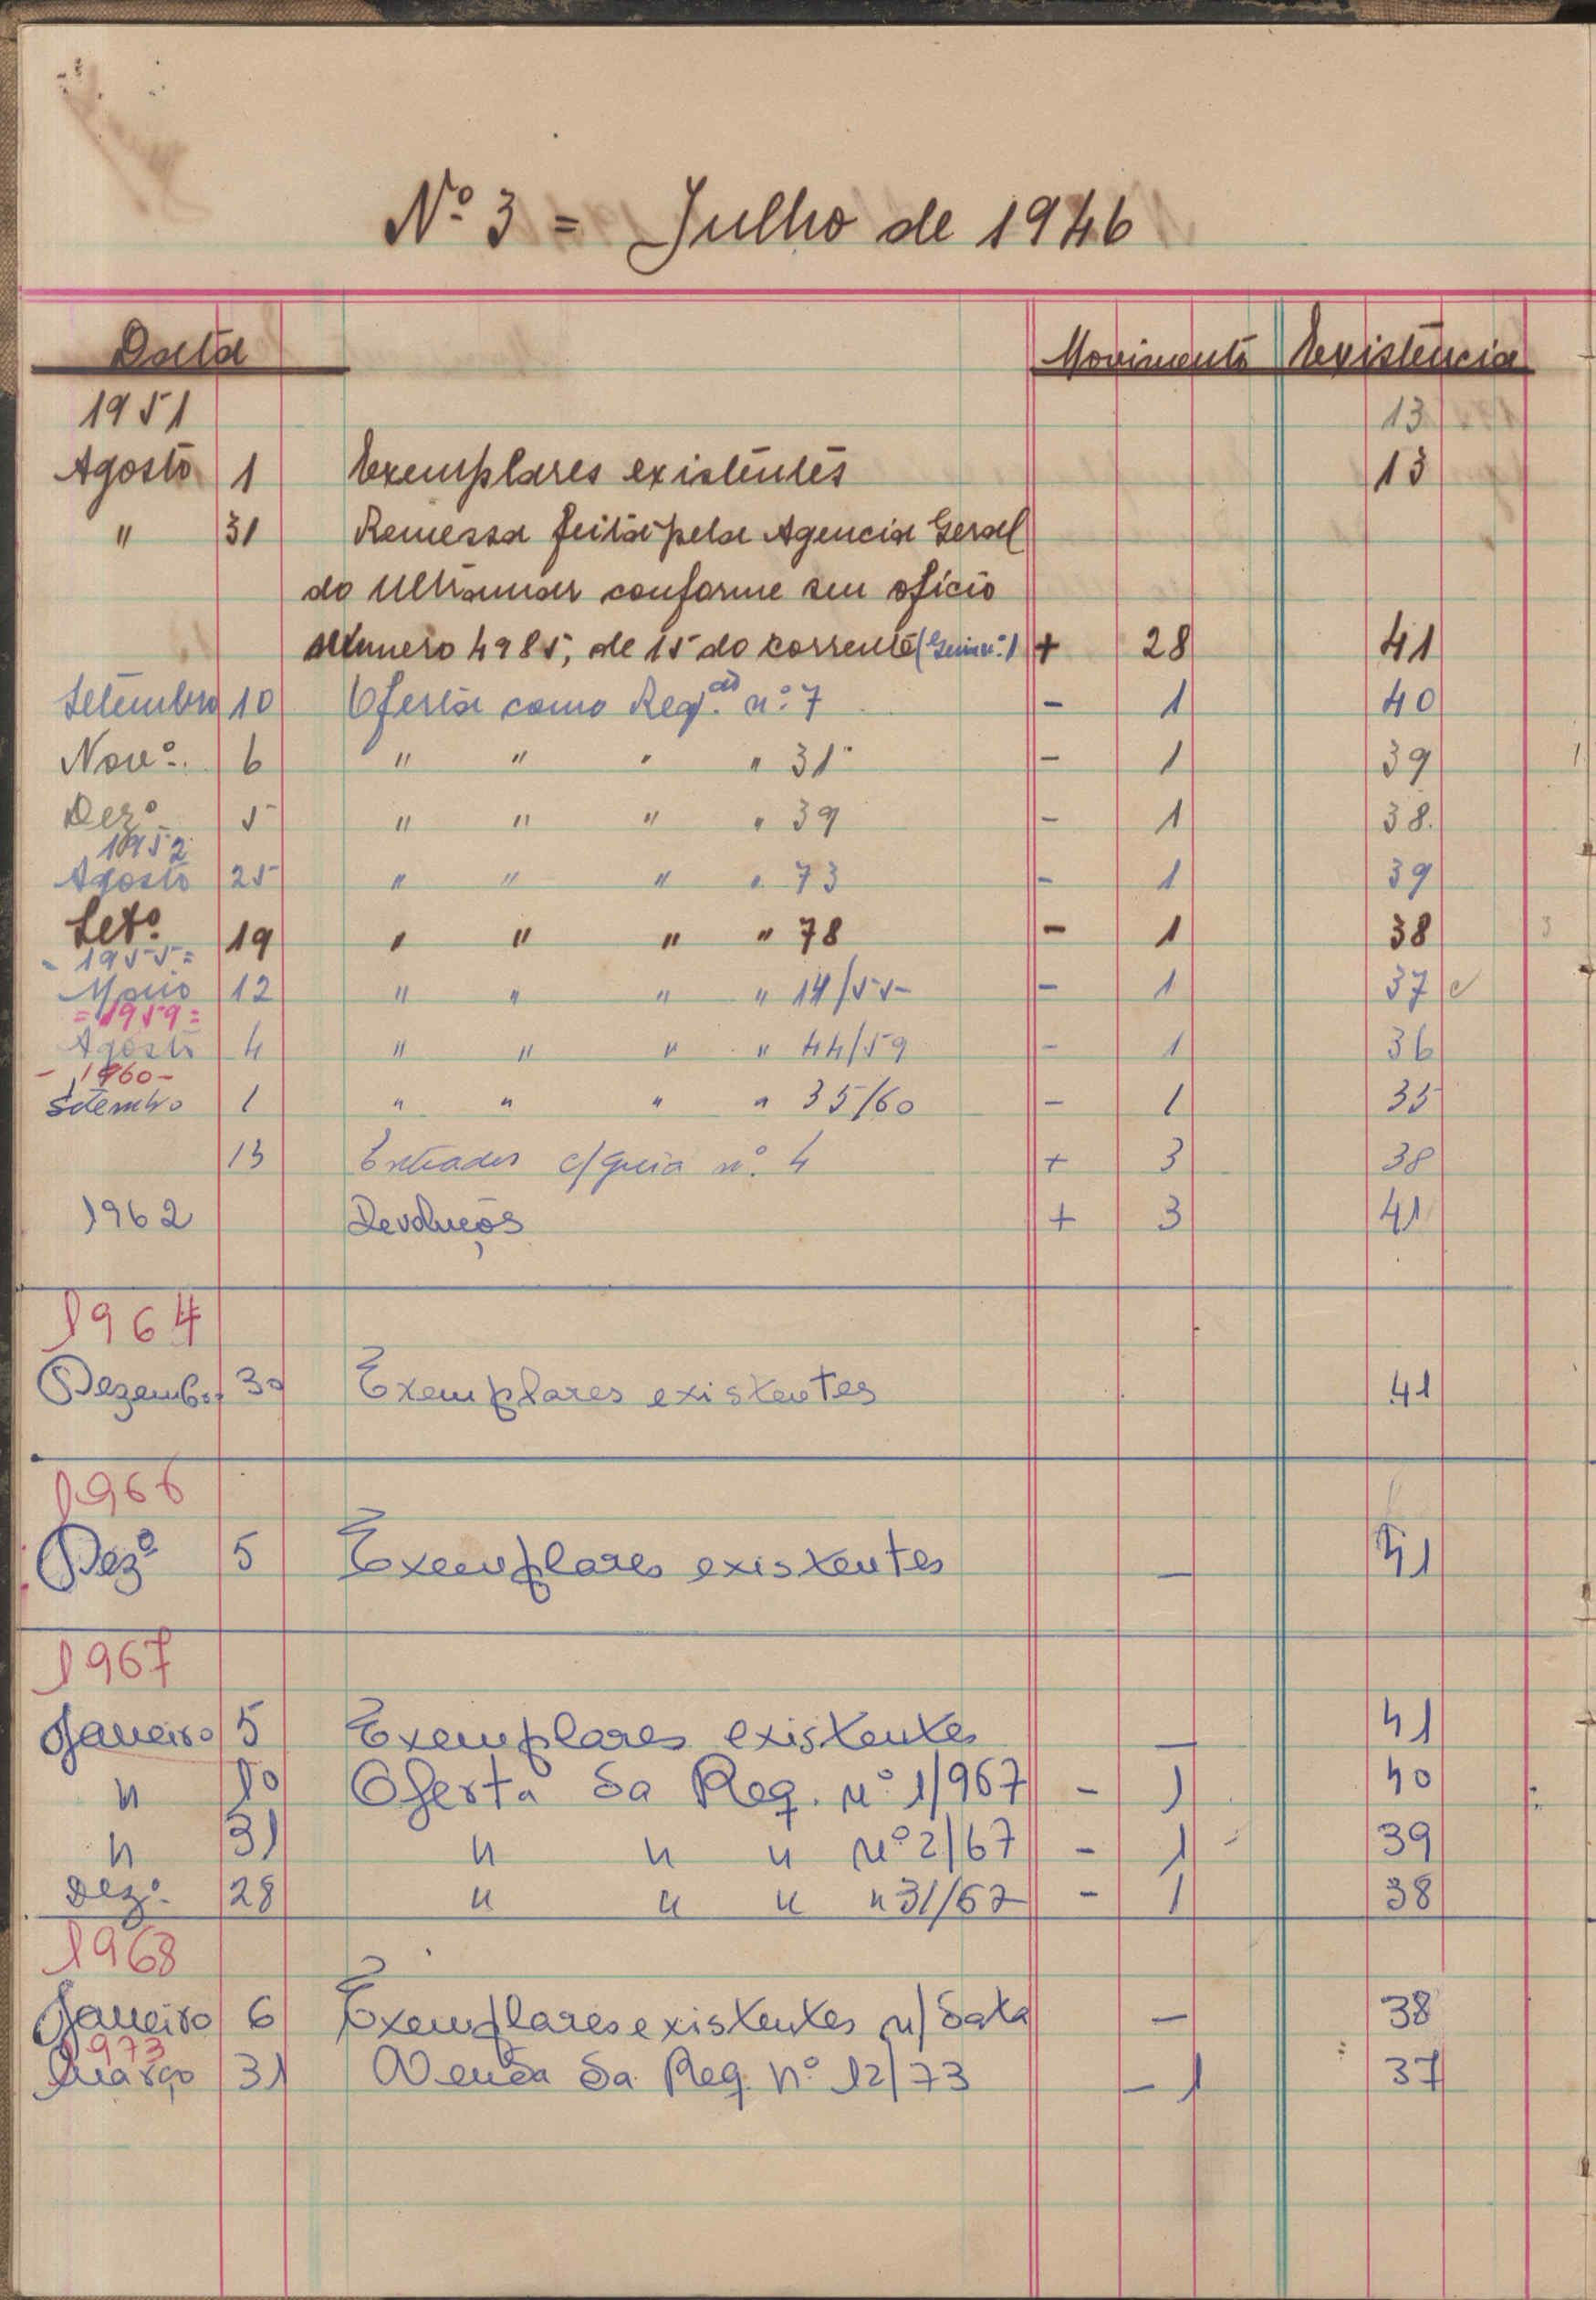 Nº 3 = Julho de 1946
Data Movimento Existência
1951 13
Agosto 1 Exemplares existentes 13
" 31 Remessa feita pela Agencia Geral
do Ultramar conforme seu oficio
numero 4985, de 15 do corrente (Guia nº 1) + 28 41
Setembro 10 Oferta como Reqão. nº 7 - 1 40
Novº. 6 " " " " 31 - 1 39
Dezº 5 " " " " 39 - 1 38
1952
Agosto 25 " " " " 73 - 1 39
Setº 19 " " " " 78 - 1 38
- 1955 =
Maio 12 " " " " 14/55 - 1 37
= 1959 =
Agosto 4 " " " " 44/59 - 1 36
- 1960 -
Setembro 1 " " " " 35/60 - 1 35
13 Entradas c/guia nº. 4 + 3 38
1962 Devoluções + 3 41
1964
Dezembro 30 Exemplares existentes 41
1966
Dezº 5 Exemplares existentes — 41
1967
Janeiro 5 Exemplares existentes — 41
" 10 Oferta da Req. nº 1/967 - 1 40
" 31 " " " nº 2/67 - 1 39
Dezº. 28 " " " " 31/67 - 1 38
1968
Janeiro 6 Exemplares existentes n/data — 38
1973
Março 31 Venda da Req. nº 12/73 - 1 37